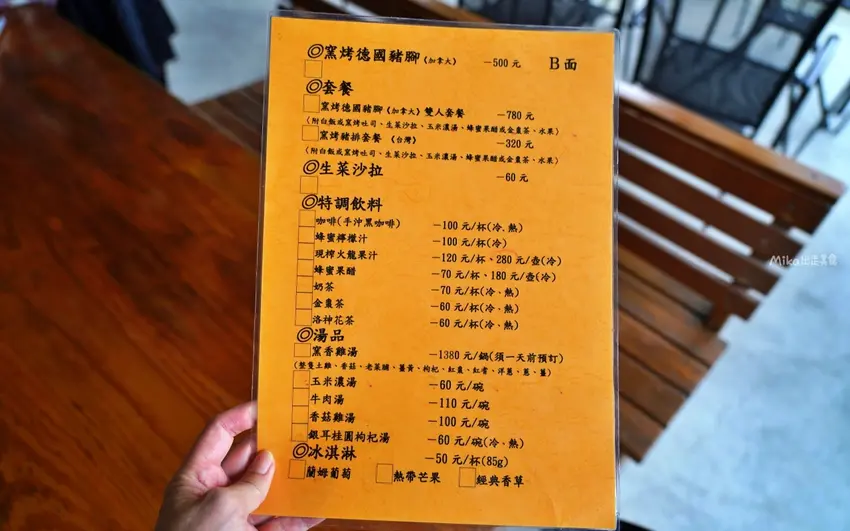 ◎窯烤德國豬腳(加拿大) －500 元 B 面
◎套餐
窯烤德國豬腳(加拿大)雙人套餐 －780 元
(附白飯或窯烤吐司、生菜沙拉、玉米濃湯、蜂蜜果醋或金棗茶、水果)
窯烤豬排套餐 (台灣) －320 元
(附白飯或窯烤吐司、生菜沙拉、玉米濃湯、蜂蜜果醋或金棗茶、水果)
◎生菜沙拉 －60 元
◎特調飲料
咖啡(手沖黑咖啡) －100 元/杯(冷、熱)
蜂蜜檸檬汁 －100 元/杯(冷)
現榨火龍果汁 －120 元/杯、280 元/壺(冷)
蜂蜜果醋 －70 元/杯、180 元/壺(冷)
奶茶 －70 元/杯(冷、熱)
金棗茶 －60 元/杯(冷、熱)
洛神花茶 －60 元/杯(冷、熱)
◎湯品
窯香雞湯 －1380 元/鍋(須一天前預訂)
(整隻土雞、香菇、老菜脯、薑黃、枸杞、紅棗、紅蔥、洋蔥、蔥、薑)
玉米濃湯 －60 元/碗
牛肉湯 －110 元/碗
香菇雞湯 －100 元/碗
銀耳桂圓枸杞湯 －60 元/碗(冷、熱)
◎冰淇淋 －50 元/杯(85g)
蘭姆葡萄 熱帶芒果 經典香草
Mika出走美食